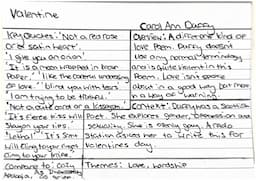 Valentine
Carol Ann Duffy
Key Quotes: 'Not a red rose
or a satin heart'.
'I give you an onion'
'It is a moon wrapped in brown
Paper'. 'like the careful undressing
of love'. 'blind you with tears'
'I am trying to be truthful'.
'Not a cute card or a kissogram'.
'It's fierce kiss will
stay on your lips.'
'Lethal'. 'It's scent
will cling to your fingers
cling to your knife.'
Compare to: Cozy
Apologia,
Overview: A different kind of
love Poem. Duffy doesn't
use any normal terminology
and is quite violent in this
Poem. Love isn't spoke
about in a good way but more
in a way of warning.
Context: Duffy has a Scottish
Poet. She explores gender, oppression and
sexuality. She is openly gay. A radio
Station asked her to write this for
Valentines day.
Themes: Love, Hardship